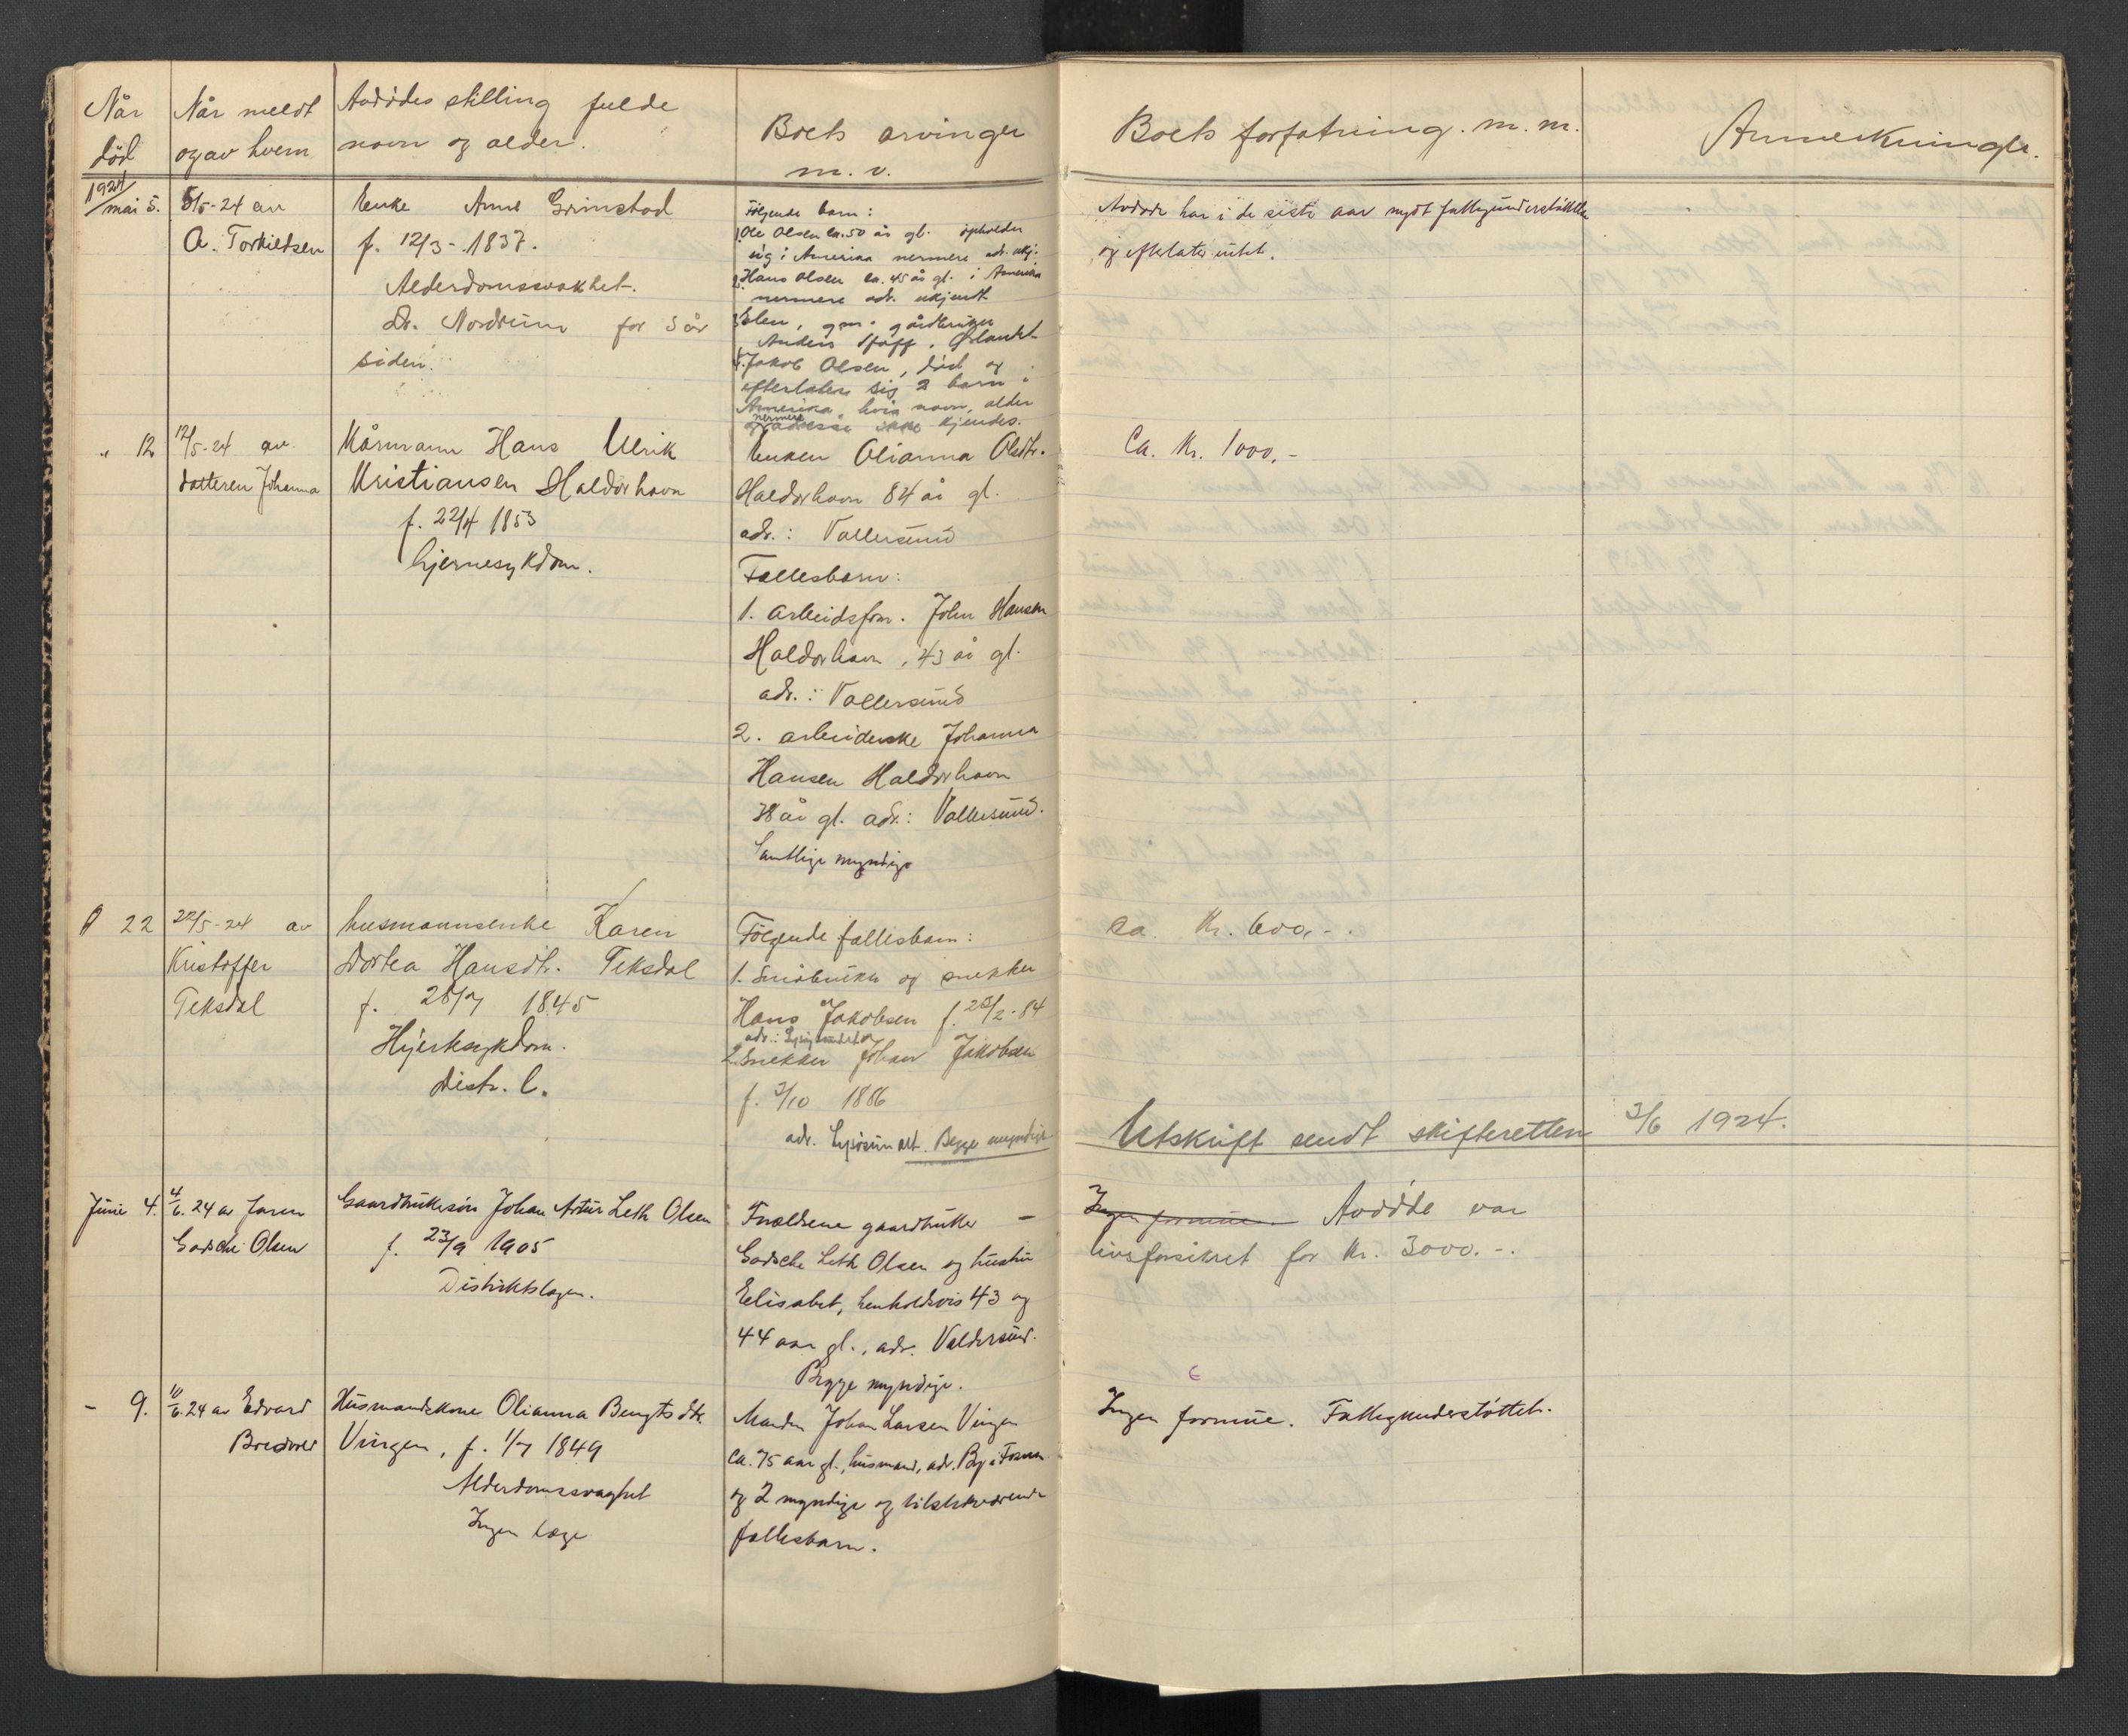 Når
død
Når meldt
og av hvem
Avdødes stilling fulde
navn og alder.
Boets arvinger
m. v.
Boets forfatning. m. m.
Anmerkninger.
1924
mai 5.
5/5-24 av
A. Torkildsen
Enke Anne Grimstad
f. 12/3 - 1837.
Alderdomssvakhet.
Dr. Nordrum for 3 år
siden.
Følgende barn:
1. Ole Olsen ca. 50 år gl. opholder
sig i Amerika nermere adr. ukj.
2. Hans Olsen ca. 45 år gl. i Amerika
nermere adr. ukjendt
3. Elen, gm. gårdbruker
Anders Hoff, Ørlandet
4. Jakob Olsen, død og
efterlater sig 2 barn i
Amerika, hvis navn, alder
og nermere adresse ikke kjendes.
Avdøde har i de siste aar nydt fattigunderstøttelse
og efterlater intet.
" 12
12/5-24 av
datteren Johanna
Kårmann Hans Ulrik
Kristiansen Haldorhavn
f. 22/4 1853
hjernesykdom.
Enken Olianna Olsdtr.
Haldorhavn 84 år gl.
adr.: Vallersund
Fællesbarn:
1. arbeidsfom. John Hansen
Haldorhavn, 43 år gl.
adr.: Vallersund
2. arbeiderske Johanna
Hansen Haldorhavn
38 år gl. adr.: Vallersund.
Samtlige myndige
Ca. Kr. 1000.-
" 22
22/5-24 av
Kristoffer
Teksdal
husmannsenke Karen
Dortea Hansdtr. Teksdal
f. 28/7 1845
Hjertesykdom.
Distr. l.
Følgende fællesbarn:
1. Småbruker og snekker
Hans Jakobsen f. 25/2-84
adr.: Lysøysundet
2. Snekker Johan Jakobsen
f. 3/10 1886
adr. Lysøsundet. Begge myndige
ca. Kr. 600,-.
Utskrift sendt skifteretten 3/6 1924.
Juni 4.
4/6.24 av faren
Godsche Olsen
Gaardbrukersøn Johan Artur Leth Olsen
f. 23/9 1905
Distriktslægen.
Forældrene gaardbruker -
Godsche Leth Olsen og hustru
Elisabet, henholdsvis 43 og
44 aar gl., adr. Valdersund.
Begge myndige.
Ingen formue. Avdøde var
livsforsikret for Kr. 3000.-.
- 9.
10/6.24 av Edvard
Bredvold
Husmandskone Olianna Bengtsdtr.
Vingen, f. 1/7 1849
Alderdomssvaghet
Ingen læge
Manden Johan Larsen Vingen
ca. 75 aar gl., husmand, adr. By i Fosen
og 2 myndige og tilstedeværende
fællesbarn.
Ingen formue. Fattigunderstøttet.